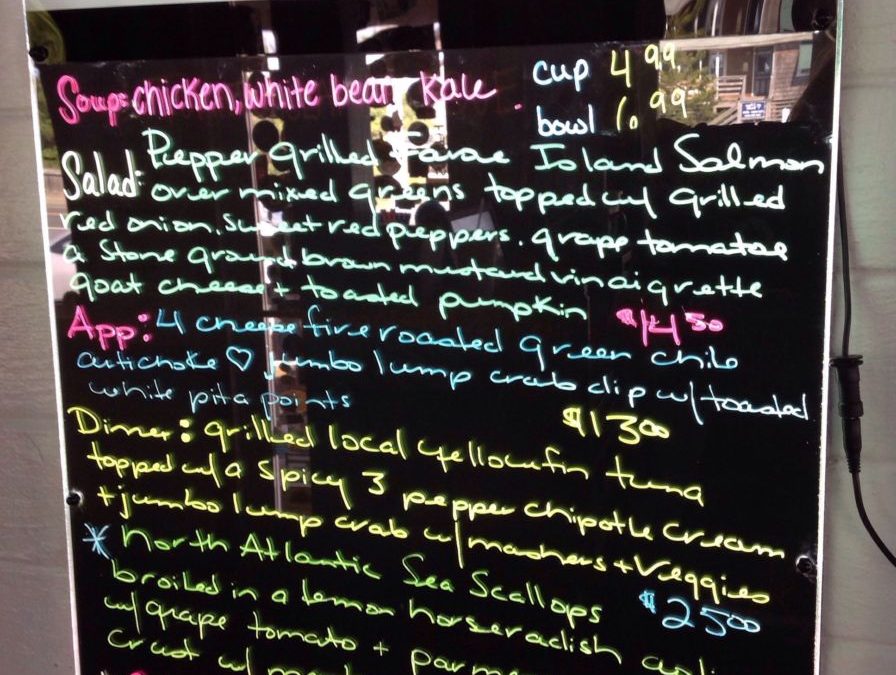 Soup: chicken, white bean kale cup 4.99
bowl 6.99
Salad: Pepper grilled Faroe Island Salmon
over mixed greens topped w/ grilled
red onion, sweet red peppers, grape tomatoe
a Stone ground brown mustard vinaigrette
goat cheese + toasted pumpkin $14.50
App: 4 cheese fire roasted green chile
artichoke ♡ jumbo lump crab dip w/ toasted
white pita points $13.00
Dinner: grilled local yellowfin tuna
topped w/ a spicy 3 pepper chipotle cream
+ jumbo lump crab w/ mashers + Veggies
* North Atlantic Sea Scallops $25.00
broiled in a lemon horseradish
w/ grape tomato +
crust w/